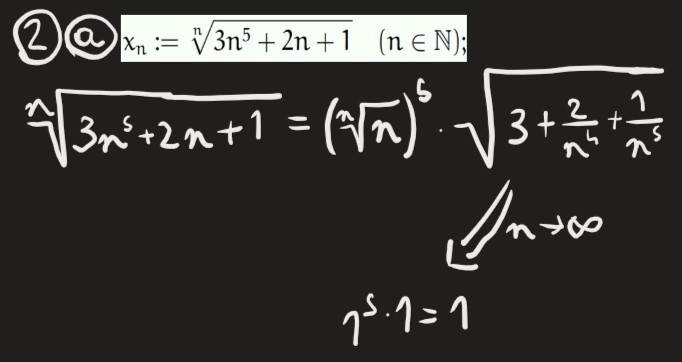 2 a xₙ := ⁿ√(3n⁵ + 2n + 1) (n ∈ ℕ);
ⁿ√(3n⁵+2n+1) = (ⁿ√n)⁵ · √(3 + 2/n⁴ + 1/n⁵)
n→∞
1⁵·1=1